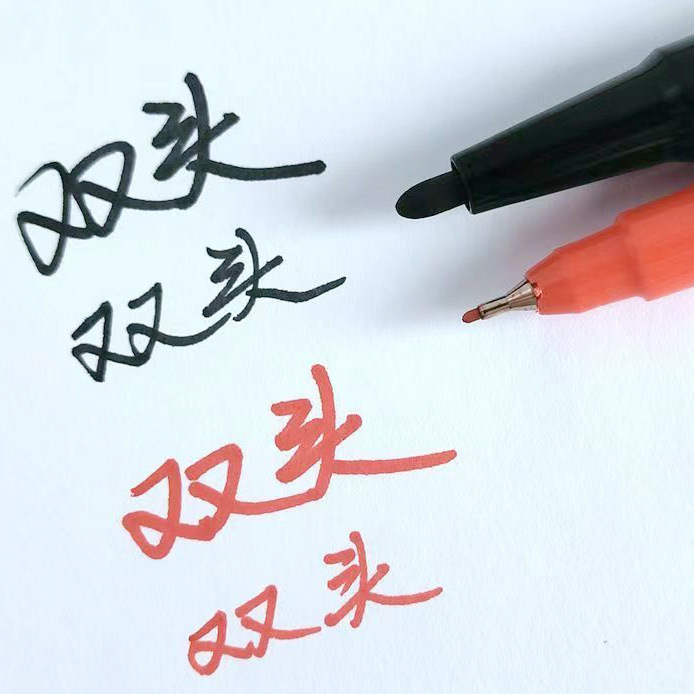 双头
双头
双头
双头